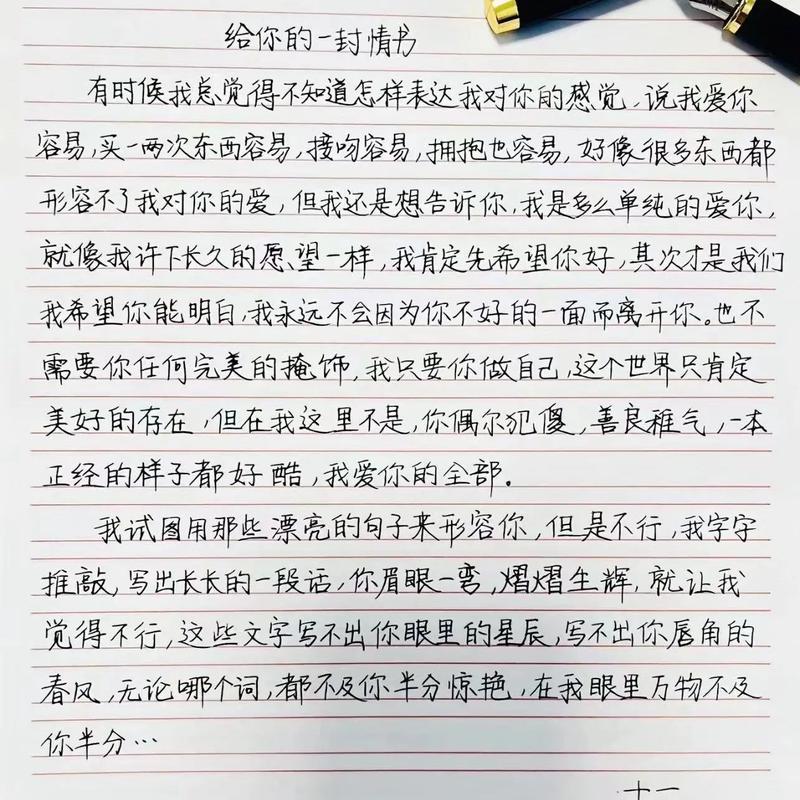 给你的一封情书
有时候我总觉得不知道怎样表达我对你的感觉，说我爱你
容易，买一两次东西容易，接吻容易，拥抱也容易，好像很多东西都
形容不了我对你的爱，但我还是想告诉你，我是多么单纯的爱你，
就像我许下长久的愿望一样，我肯定先希望你好，其次才是我们
我希望你能明白，我永远不会因为你不好的一面而离开你。也不
需要你任何完美的掩饰，我只要你做自己，这个世界只肯定
美好的存在，但在我这里不是，你偶尔犯傻，善良稚气，一本
正经的样子都好酷，我爱你的全部。
我试图用那些漂亮的句子来形容你，但是不行，我字字
推敲，写出长长的一段话，你眉眼一弯，熠熠生辉，就让我
觉得不行，这些文字写不出你眼里的星辰，写不出你唇角的
春风，无论哪个词，都不及你半分惊艳，在我眼里万物不及
你半分…
十一